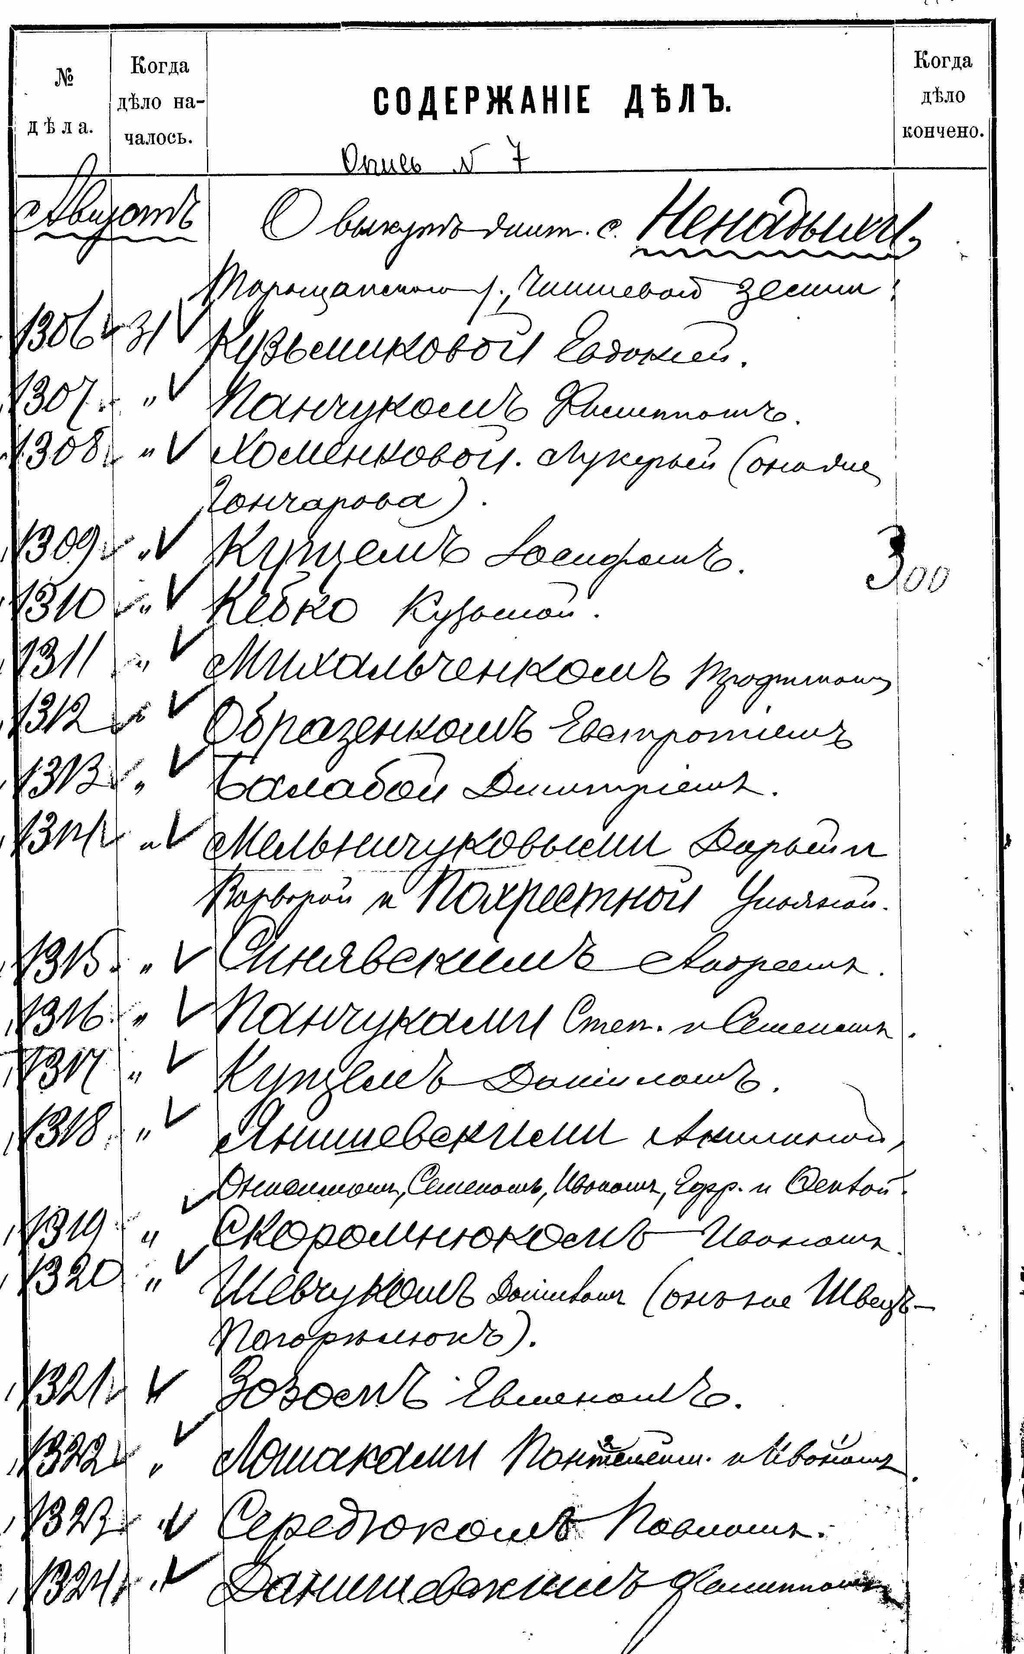 № дѣла.
Когда дѣло началось.
СОДЕРЖАНІЕ ДѢЛЪ.
Когда дѣло кончено.
Опись N 7
Августъ О выкупѣ жит. с. Ненадыхи,
Таращанскаго у., чиншевой земли:
1306 31 Кузьмиковой Евдокіей.
1307. " Панчукомъ Филиппомъ.
1308 " Хоменковой. Лукерьей (она же
Гончарова).
1309 " Купцемъ Іосифомъ. 300
1310 " Кебко Кузьмой.
1311 " Михальченкомъ Трофимомъ
1312 " Образенкомъ Евстратіемъ
1313 " Балабой Димитріемъ.
1314 " Мельничуковыми Дарьей и
Варварой и Похрестной Ульяной.
1315. " Синявскимъ Андреемъ.
1316. " Панчуками Степ. и Семеномъ.
1317 " Купцемъ Даніиломъ.
1318. " Янишевскими Акилиной,
Онисимомъ, Семеномъ, Иваномъ, Ефр. и Феклой.
1319 " Скоромнюкомъ Иваномъ.
1320 " Шевчукомъ (онъ же Швецъ-
Погорѣлюкъ).
1321 " Зозомъ Евменомъ.
1322 " Лошаками Пантелеим. и Иваномъ.
1323 " Середюкомъ Павломъ.
1324 " Данишевскимъ Филиппомъ